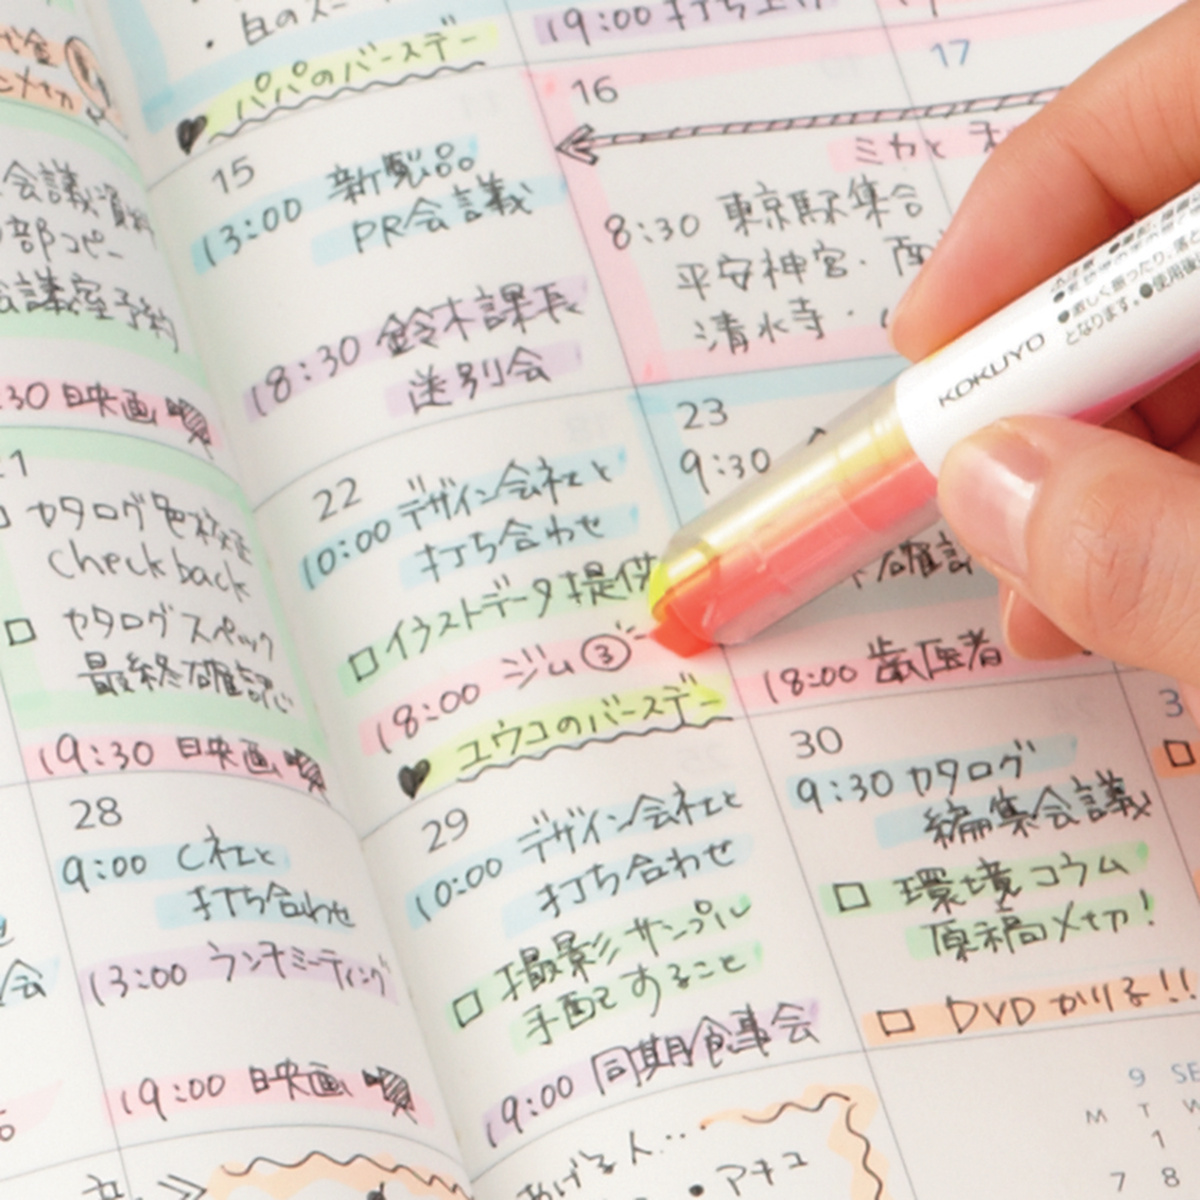 白のス
パパのバースデー
19:00 打ち上げ
会議資料
部コピー
会議室予約
:30 映画
カタログ色校正
check back
カタログスペック
最終確認
19:30 映画
28
9:00 C社と
打ち合わせ
13:00 ランチミーティング
19:00 映画
15
13:00 新製品
PR会議
18:30 鈴木課長
送別会
22
10:00 デザイン会社と
打ち合わせ
イラストデータ提供
18:00 ジム③
ユウコのバースデー
29
10:00 デザイン会社と
打ち合わせ
撮影サンプル
手配すること
19:00 同期食事会
アキコ
16
ミカと
8:30 東京駅集合
平安神宮・
清水寺・
23
9:30
18:00 歯医者
30
9:30 カタログ
編集会議
環境コラム
原稿〆切!
DVDかりる!!
17
3
9 SE
M T W
1
7 8
KOKUYO
となります。●使用後